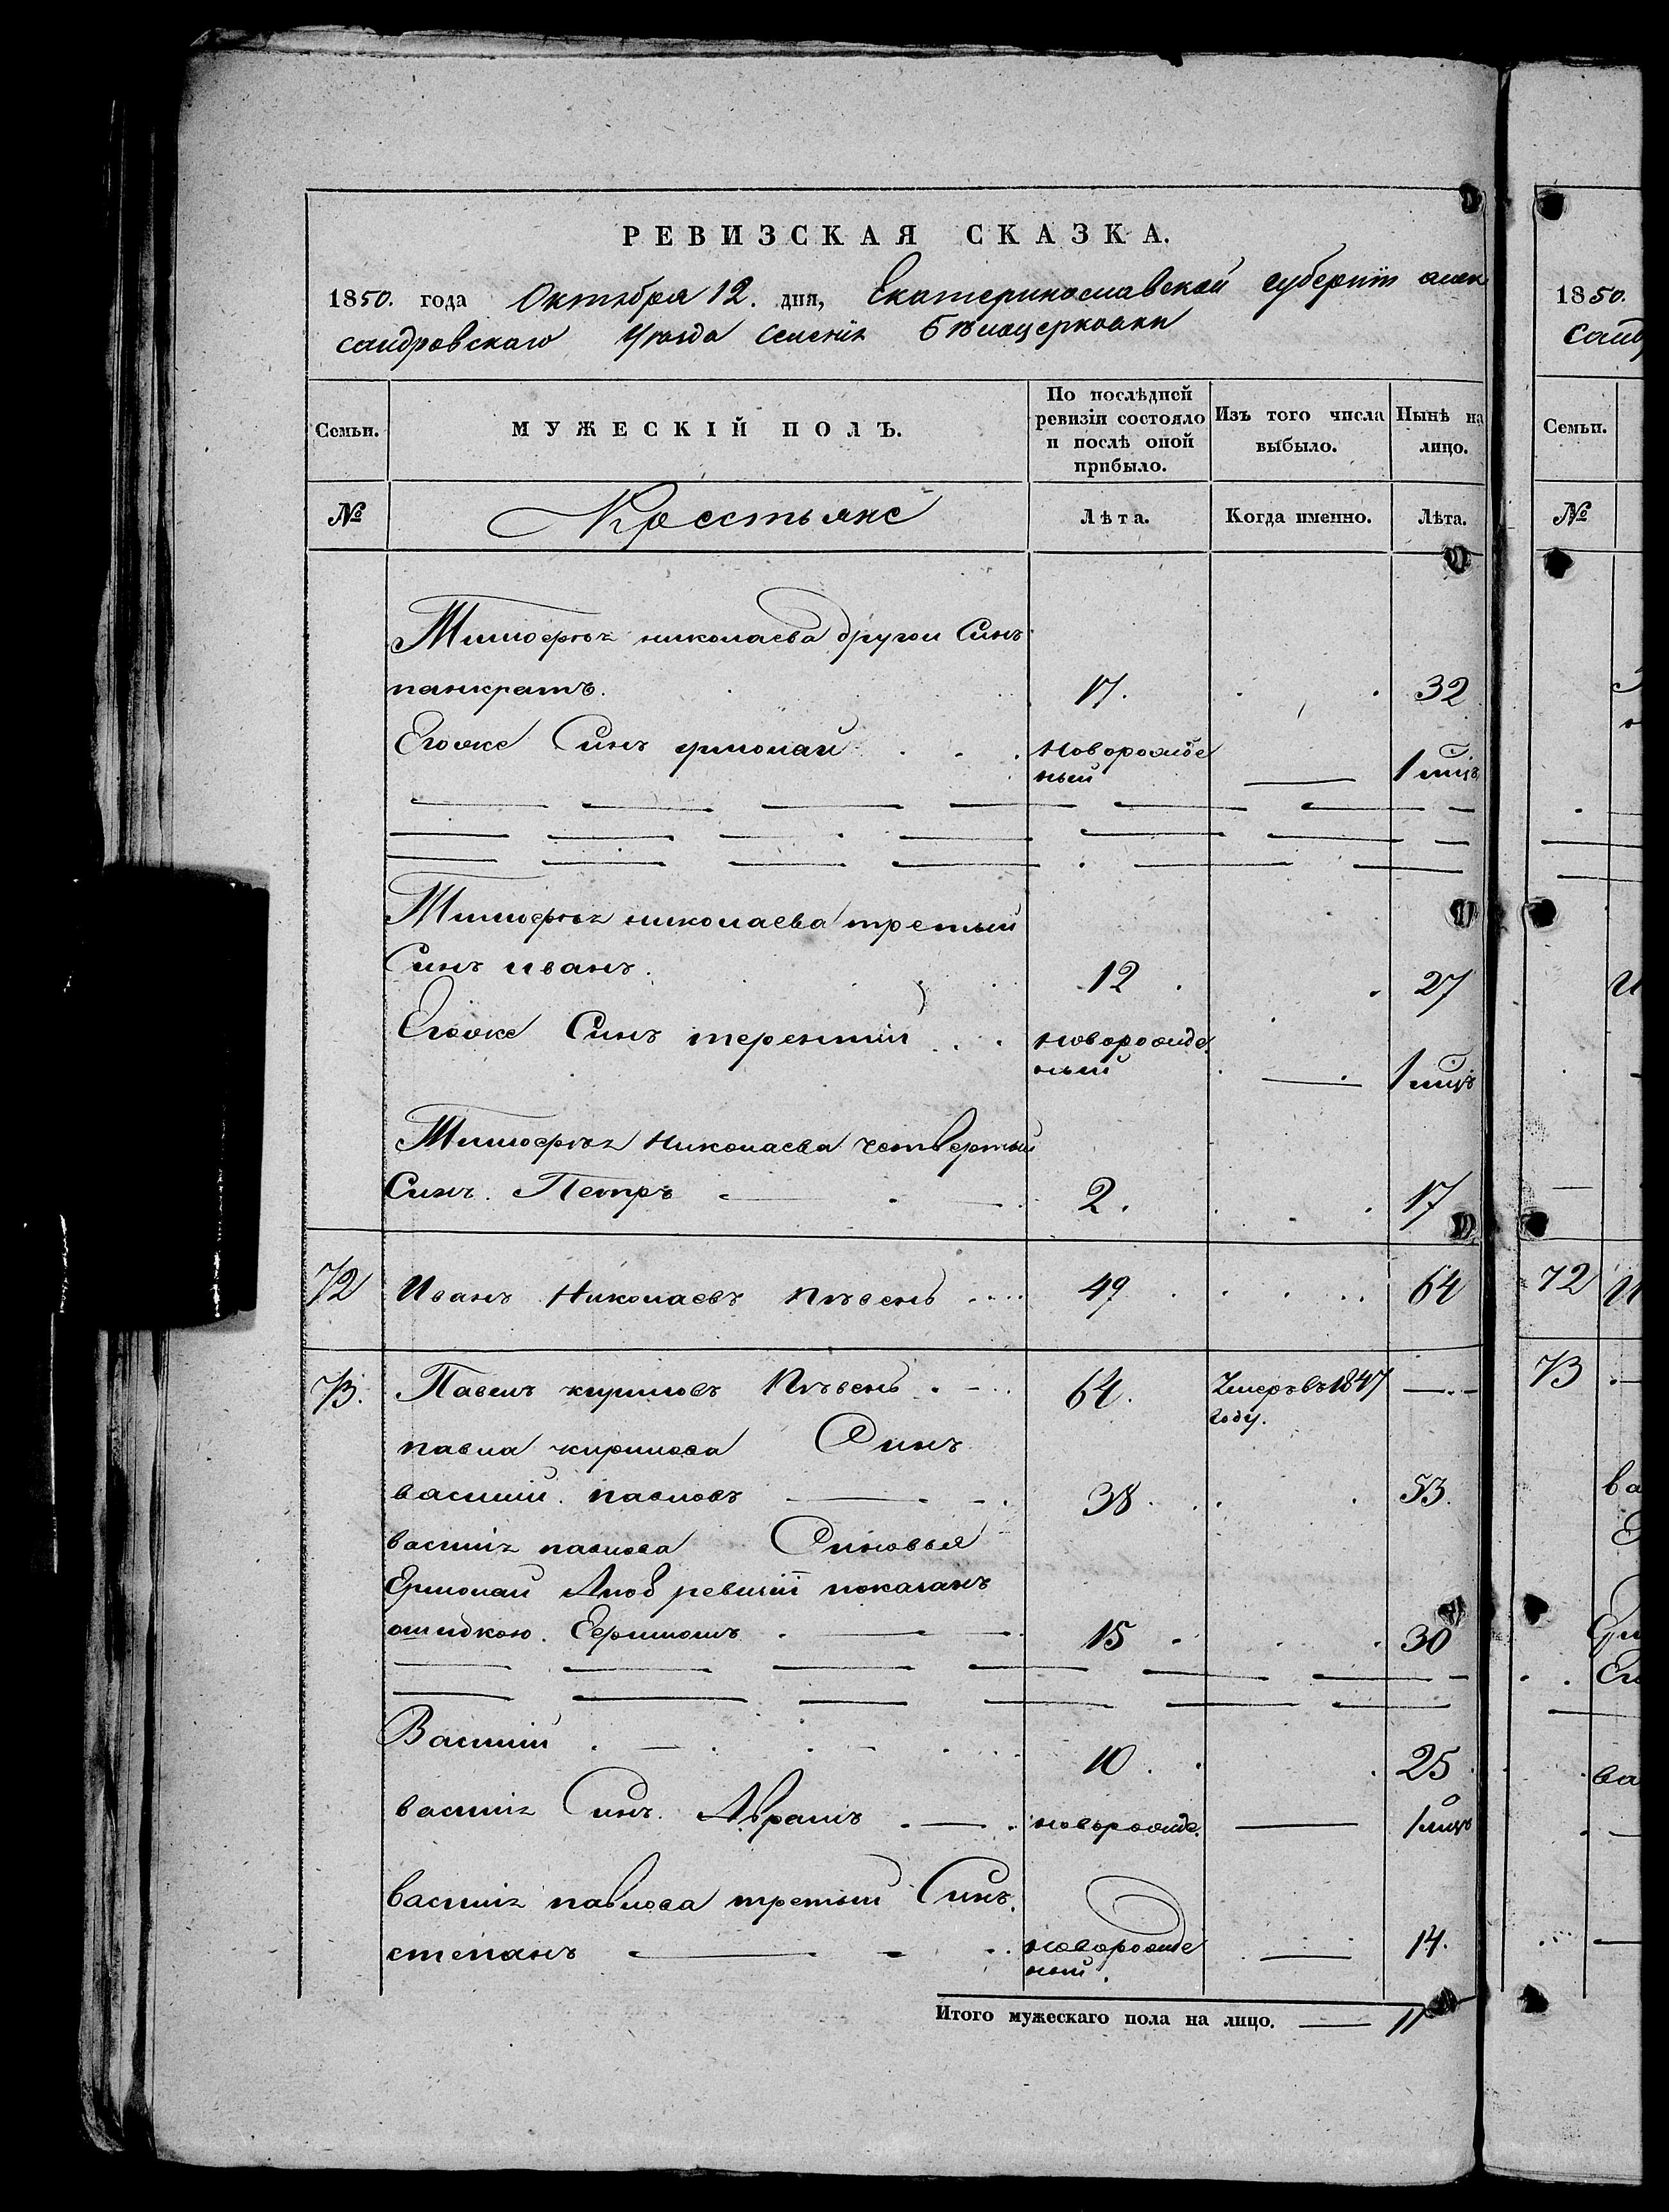 РЕВИЗСКАЯ СКАЗКА.
1850. года Октября 12. дня, Екатеринославской губернїи алек
сандровскаго Уѣзда Селенїя Бѣлацерковки
Семьи.
МУЖЕСКІЙ ПОЛЪ.
По послѣдней
ревизіи состояло
и послѣ оной
прибыло.
Изъ того числа
выбыло.
Нынѣ на
лицо.
№
Крестьяне
Лѣта.
Когда именно.
Лѣта.
Тимофѣя николаева другои Синъ
панкратъ. 17. 32
Егоже Синъ ермолаи новорожде
ный 1 мцъ
Тимофѣя николаева третый
Синъ иванъ. 12 27
Егоже Синъ терентий новорожде.
ный 1 мцъ
Тимофѣя Николаева четвертый
Синъ. Петръ 2. 17
72 Иванъ Николаевъ пѣвень 49 64
73. Павелъ кириловъ Пѣвень 64. Умеръ въ 1847
году.
павла кирилова Синъ
василий. павловъ 38 53.
василия павлова Синовья
Ермолаи Апо 8 ревизїи показанъ
ошибкою. Ефримомъ 15 30
Василий 10. 25
василия Синъ. Аврамъ новорожде. 1 мцъ
василия павлова третый Синъ.
степанъ новорожде
ный. 14.
Итого мужескаго пола на лицо. 11
1850.
санд
Семьи.
№
72 И
73
ва